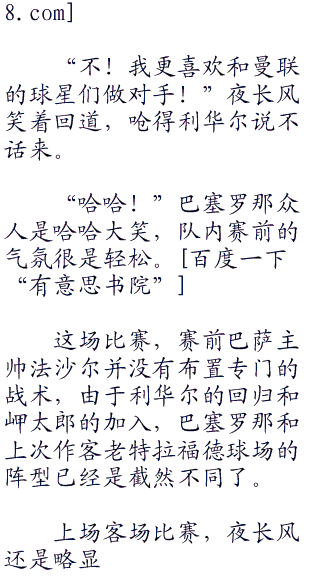 8.com]
“不！我更喜欢和曼联
的球星们做对手！”夜长风
笑着回道，呛得利华尔说不
话来。
“哈哈！”巴塞罗那众
人是哈哈大笑，队内赛前的
气氛很是轻松。[百度一下
“有意思书院”]
这场比赛，赛前巴萨主
帅法沙尔并没有布置专门的
战术，由于利华尔的回归和
岬太郎的加入，巴塞罗那和
上次作客老特拉福德球场的
阵型已经是截然不同了。
上场客场比赛，夜长风
还是略显